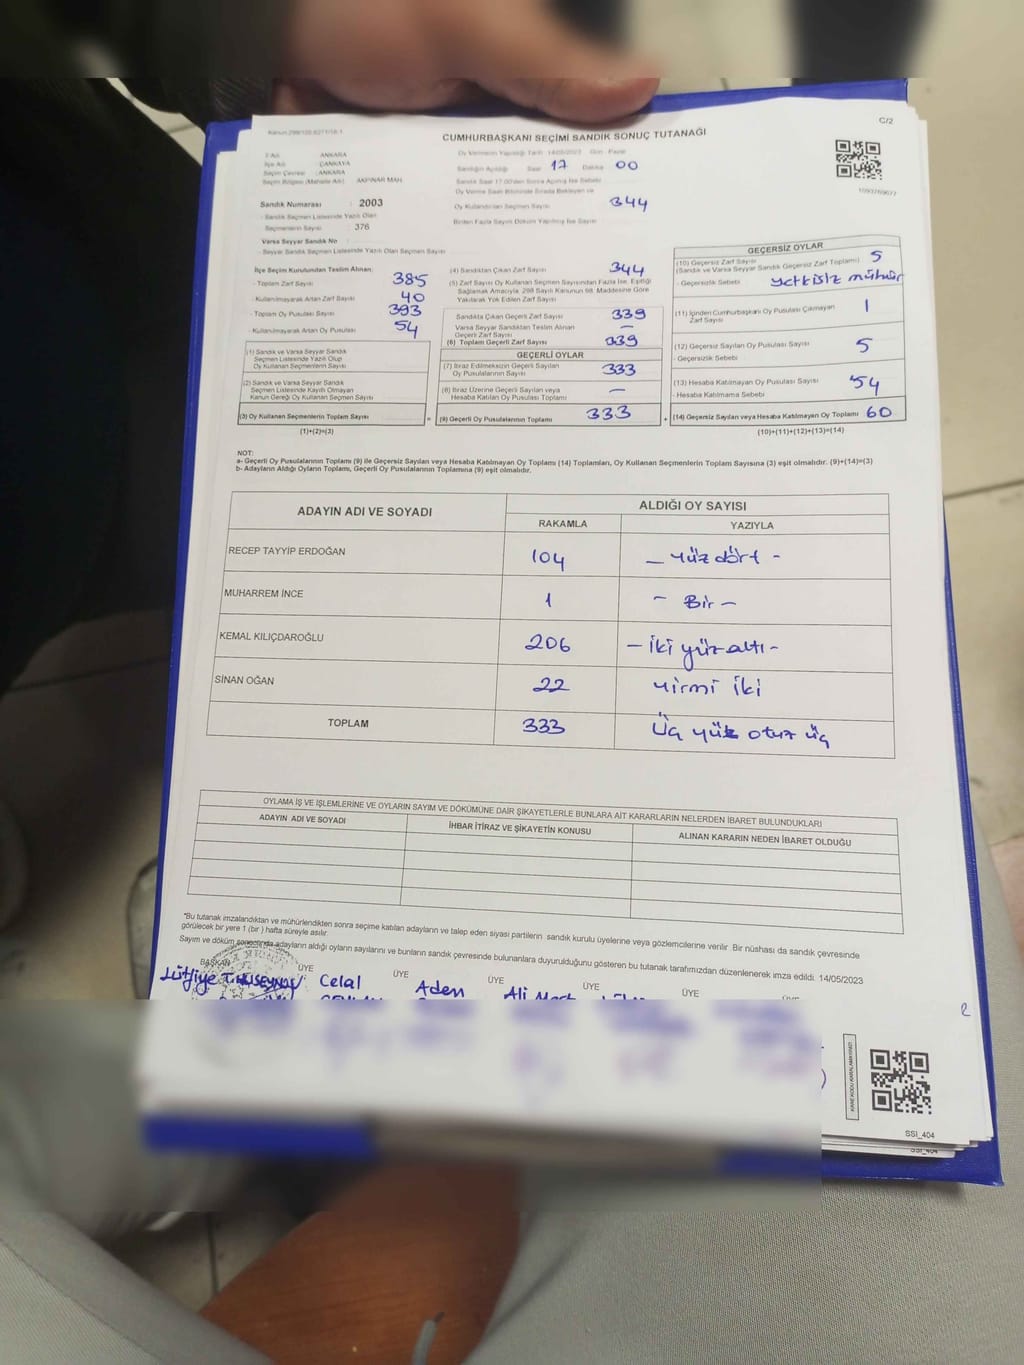 C/2
CUMHURBAŞKANI SEÇİMİ SANDIK SONUÇ TUTANAĞI
İl Adı : ANKARA
İlçe Adı : ÇANKAYA
Seçim Çevresi : ANKARA
Seçim Bölgesi (Mahalle Adı) AKPINAR MAH.
Sandık Numarası : 2003
- Sandık Seçmen Listesinde Yazılı Olan
Seçmenlerin Sayısı : 376
Varsa Seyyar Sandık No
- Seyyar Sandık Seçmen Listesinde Yazılı Olan Seçmen Sayısı
Oy Vermenin Yapıldığı Tarih 14/05/2023 Gün : Pazar
Sandığın Açıldığı Saat 17 Dakika 00
Sandık Saat 17.00'den Sonra Açılmış İse Sebebi
Oy Verme Saati Bitiminde Sırada Bekleyen ve
Oy Kullandırılan Seçmen Sayısı 344
Birden Fazla Sayım Döküm Yapılmış İse Sayısı
1093769677
İlçe Seçim Kurulundan Teslim Alınan;
- Toplam Zarf Sayısı 385
- Kullanılmayarak Artan Zarf Sayısı 40
- Toplam Oy Pusulası Sayısı 393
- Kullanılmayarak Artan Oy Pusulası 54
(1) Sandık ve Varsa Seyyar Sandık
Seçmen Listesinde Yazılı Olup
Oy Kullanan Seçmenlerin Sayısı
(2) Sandık ve Varsa Seyyar Sandık
Seçmen Listesinde Kayıtlı Olmayan
Kanun Gereği Oy Kullanan Seçmen Sayısı
(3) Oy Kullanan Seçmenlerin Toplam Sayısı =
(1)+(2)=(3)
(4) Sandıktan Çıkan Zarf Sayısı 344
(5) Zarf Sayısı Oy Kullanan Seçmen Sayısından Fazla İse, Eşitliği
Sağlamak Amacıyla, 298 Sayılı Kanunun 98. Maddesine Göre
Yakılarak Yok Edilen Zarf Sayısı
Sandıkta Çıkan Geçerli Zarf Sayısı 339
Varsa Seyyar Sandıktan Teslim Alınan
Geçerli Zarf Sayısı —
(6) Toplam Geçerli Zarf Sayısı 339
GEÇERLİ OYLAR
(7) İtiraz Edilmeksizin Geçerli Sayılan
Oy Pusulalarının Sayısı 333
(8) İtiraz Üzerine Geçerli Sayılan veya
Hesaba Katılan Oy Pusulası Toplamı —
(9) Geçerli Oy Pusulalarının Toplamı 333 +
GEÇERSİZ OYLAR
(10) Geçersiz Zarf Sayısı 5
(Sandık ve Varsa Seyyar Sandık Geçersiz Zarf Toplamı)
- Geçersizlik Sebebi yetkisiz mühür
(11) İçinden Cumhurbaşkanı Oy Pusulası Çıkmayan
Zarf Sayısı 1
(12) Geçersiz Sayılan Oy Pusulası Sayısı 5
- Geçersizlik Sebebi
(13) Hesaba Katılmayan Oy Pusulası Sayısı 54
- Hesaba Katılmama Sebebi
(14) Geçersiz Sayılan veya Hesaba Katılmayan Oy Toplamı 60
(10)+(11)+(12)+(13)=(14)
NOT:
a- Geçerli Oy Pusulalarının Toplamı (9) ile Geçersiz Sayılan veya Hesaba Katılmayan Oy Toplamı (14) Toplamları, Oy Kullanan Seçmenlerin Toplam Sayısına (3) eşit olmalıdır. (9)+(14)=(3)
b- Adayların Aldığı Oyların Toplamı, Geçerli Oy Pusulalarının Toplamına (9) eşit olmalıdır.
ADAYIN ADI VE SOYADI
ALDIĞI OY SAYISI
RAKAMLA YAZIYLA
RECEP TAYYİP ERDOĞAN 104 — yüz dört -
MUHARREM İNCE 1 - Bir -
KEMAL KILIÇDAROĞLU 206 - iki yüz altı -
SİNAN OĞAN 22 yirmi iki
TOPLAM 333 Üç yüz otuz üç
OYLAMA İŞ VE İŞLEMLERİNE VE OYLARIN SAYIM VE DÖKÜMÜNE DAİR ŞİKAYETLERLE BUNLARA AİT KARARLARIN NELERDEN İBARET BULUNDUKLARI
ADAYIN ADI VE SOYADI İHBAR İTİRAZ VE ŞİKAYETİN KONUSU ALINAN KARARIN NEDEN İBARET OLDUĞU
*Bu tutanak imzalandıktan ve mühürlendikten sonra seçime katılan adayların ve talep eden siyasi partilerin sandık kurulu üyelerine veya gözlemcilerine verilir. Bir nüshası da sandık çevresinde
görülecek bir yere 1 (bir ) hafta süreyle asılır.
Sayım ve döküm sonucunda adayların aldığı oyların sayılarını ve bunların sandık çevresinde bulunanlara duyurulduğunu gösteren bu tutanak tarafımızdan düzenlenerek imza edildi. 14/05/2023
BAŞKAN ÜYE ÜYE ÜYE ÜYE ÜYE ÜYE
Lütfiye Celal Aden Ali Mert
SSİ_404
SSİ_404